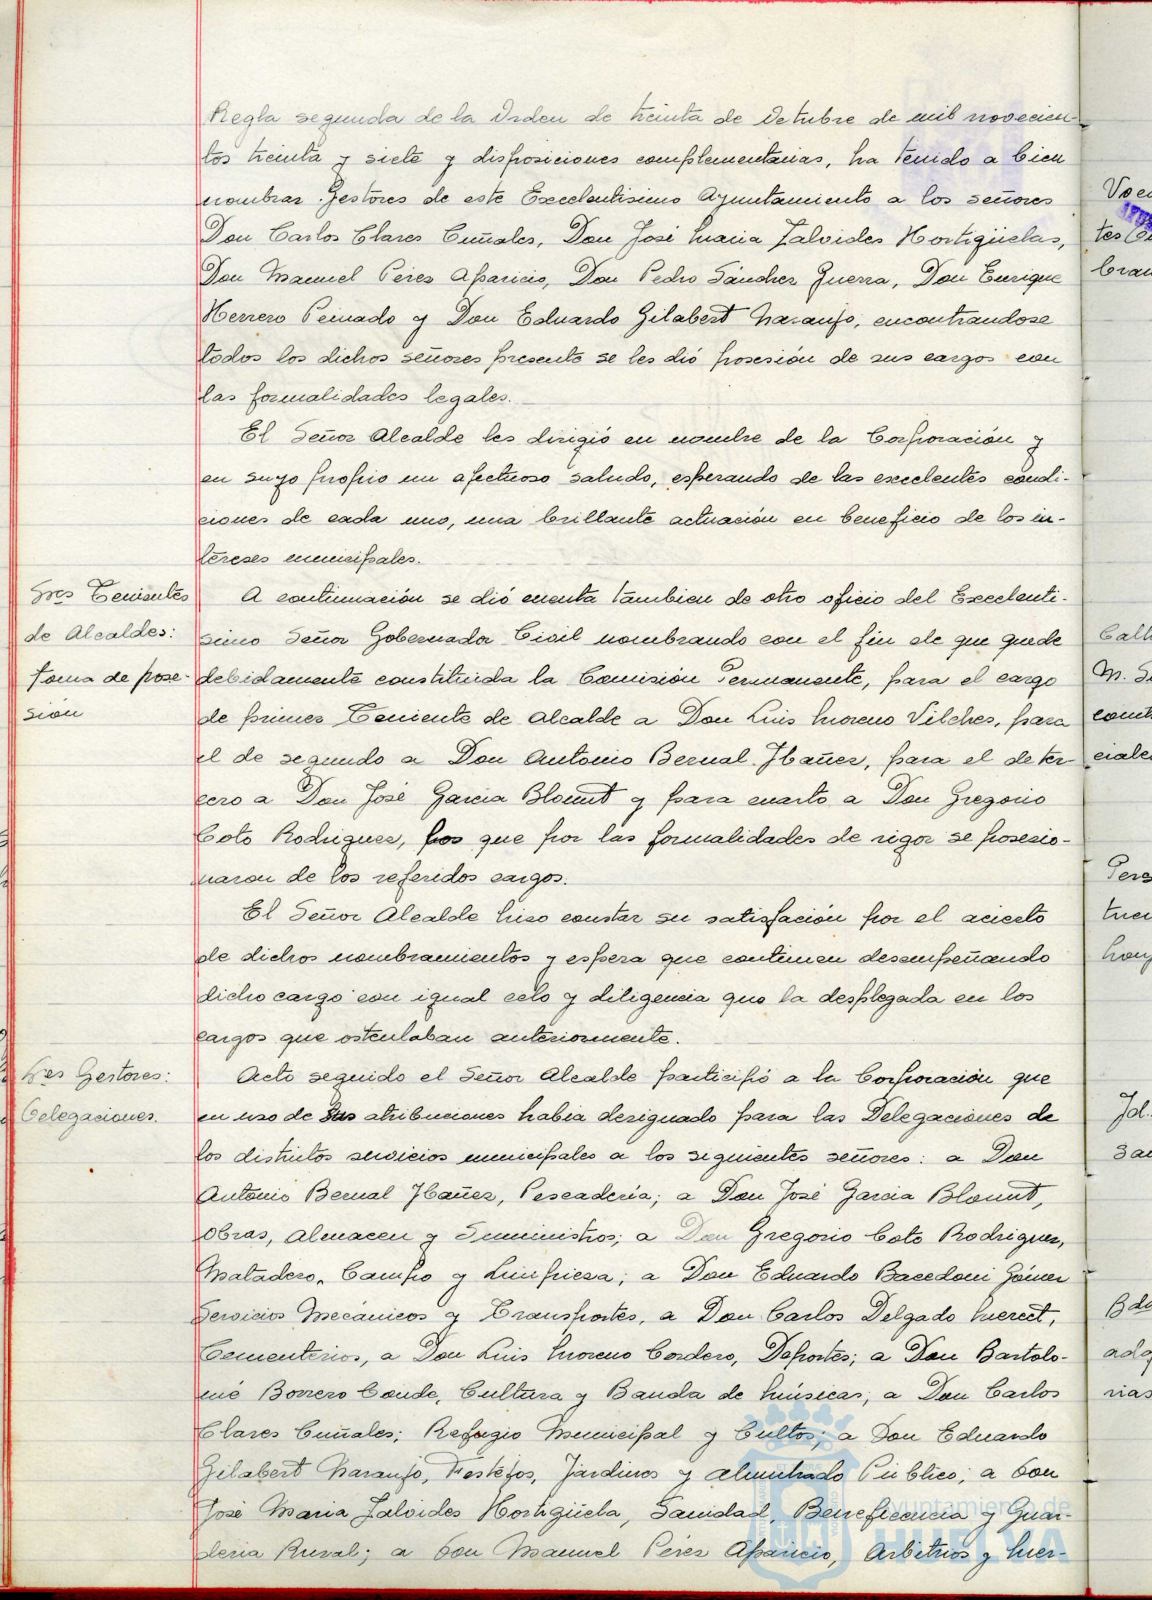 Regla segunda de la Orden de treinta de Octubre de mil novecien-
tos treinta y siete y disposiciones complementarias, ha tenido a bien
nombrar Gestores de este Excelentisimo Ayuntamiento a los señores
Don Carlos Clares Cuñales, Don José Maria Zalvides Hortigüelas,
Don Manuel Pérez Aparicio, Don Pedro Sánchez Guerra, Don Enrique
Herrero Peinado y Don Eduardo Gilabert Naranjo, encontrandose
todos los dichos señores presente se les dió posesión de sus cargos con
las formalidades legales.
El Señor Alcalde les dirigió en nombre de la Corporación y
en suyo propio un afectuoso saludo, esperando de las excelentes condi-
ciones de cada uno, una brillante actuación en beneficio de los in-
tereses municipales.
Sres Tenientes
de Alcaldes:
toma de pose-
sión
A continuación se dió cuenta tambien de otro oficio del Excelenti-
simo Señor Gobernador Civil nombrando con el fin de que quede
debidamente constituida la Comisión Permanente, para el cargo
de primer Teniente de Alcalde a Don Luis Moreno Vilches, para
el de segundo a Don Antonio Bernal Ibañez, para el de ter-
cero a Don José Garcia Blount y para cuarto a Don Gregorio
Coto Rodriguez, los que por las formalidades de rigor se posesio-
naron de los referidos cargos.
El Señor Alcalde hizo constar su satisfación por el acierto
de dichos nombramientos y espera que continuen desempeñando
dicho cargo con igual celo y diligencia que la desplegada en los
cargos que ostentaban anteriormente.
Sres Gestores:
Delegaciones.
Acto seguido el Señor Alcalde participó a la Corporación que
en uso de sus atribuciones habia designado para las Delegaciones de
los distintos servicios municipales a los siguientes señores: a Don
Antonio Bernal Ibañez, Pescaderia; a Don José Garcia Blount,
Obras, Almacen y Suministros; a Don Gregorio Coto Rodriguez,
Matadero, Campo y Limpieza; a Don Eduardo Bacedoni Gómez
Servicios Mecánicos y Transportes, a Don Carlos Delgado Merect,
Cementerios, a Don Luis Moreno Cordero, Deportes; a Don Bartolo-
mé Borrero Conde, Cultura y Banda de Músicas; a Don Carlos
Clares Cuñales; Refugio Municipal y Cultos; a Don Eduardo
Gilabert Naranjo, Festejos, Jardines y Alumbrado Público; a Don
José Maria Zalvides Hortigüela, Sanidad, Beneficencia y Guar-
deria Rural; a Don Manuel Pérez Aparicio, Arbitrios y Mer-
Ayuntamiento de
HUELVA